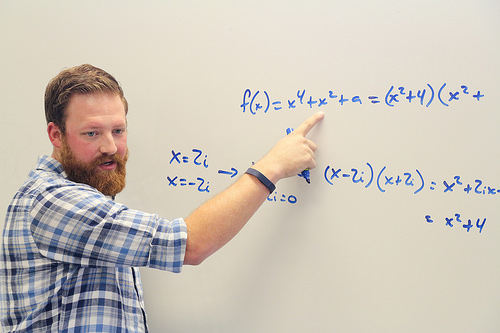 f(x) = x⁴+x²+a = (x²+4)(x²+
x=2i
x=-2i → (x-2i)(x+2i) = x²+2ix-
i=0
= x²+4